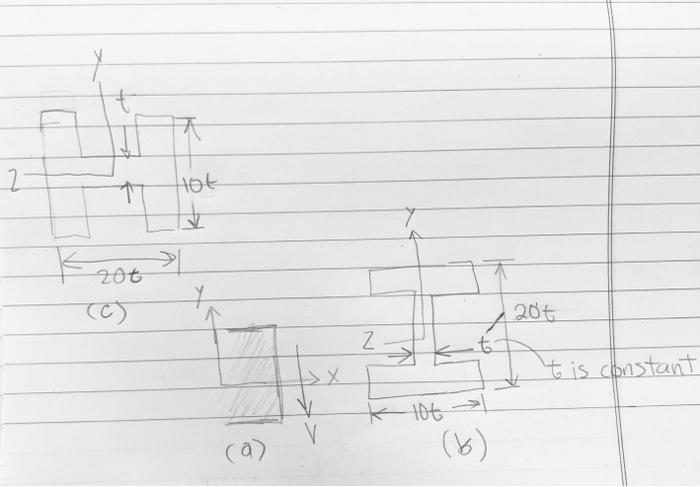 Y
t
Z
10t
20t
(c)
Y
X
V
(a)
Y
Z
20t
t
t is constant
10t
(b)